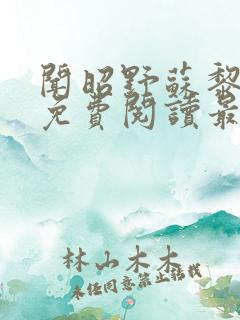 聞昭野蘇黎
免費閱讀最
林山木木
未經同意禁止轉載